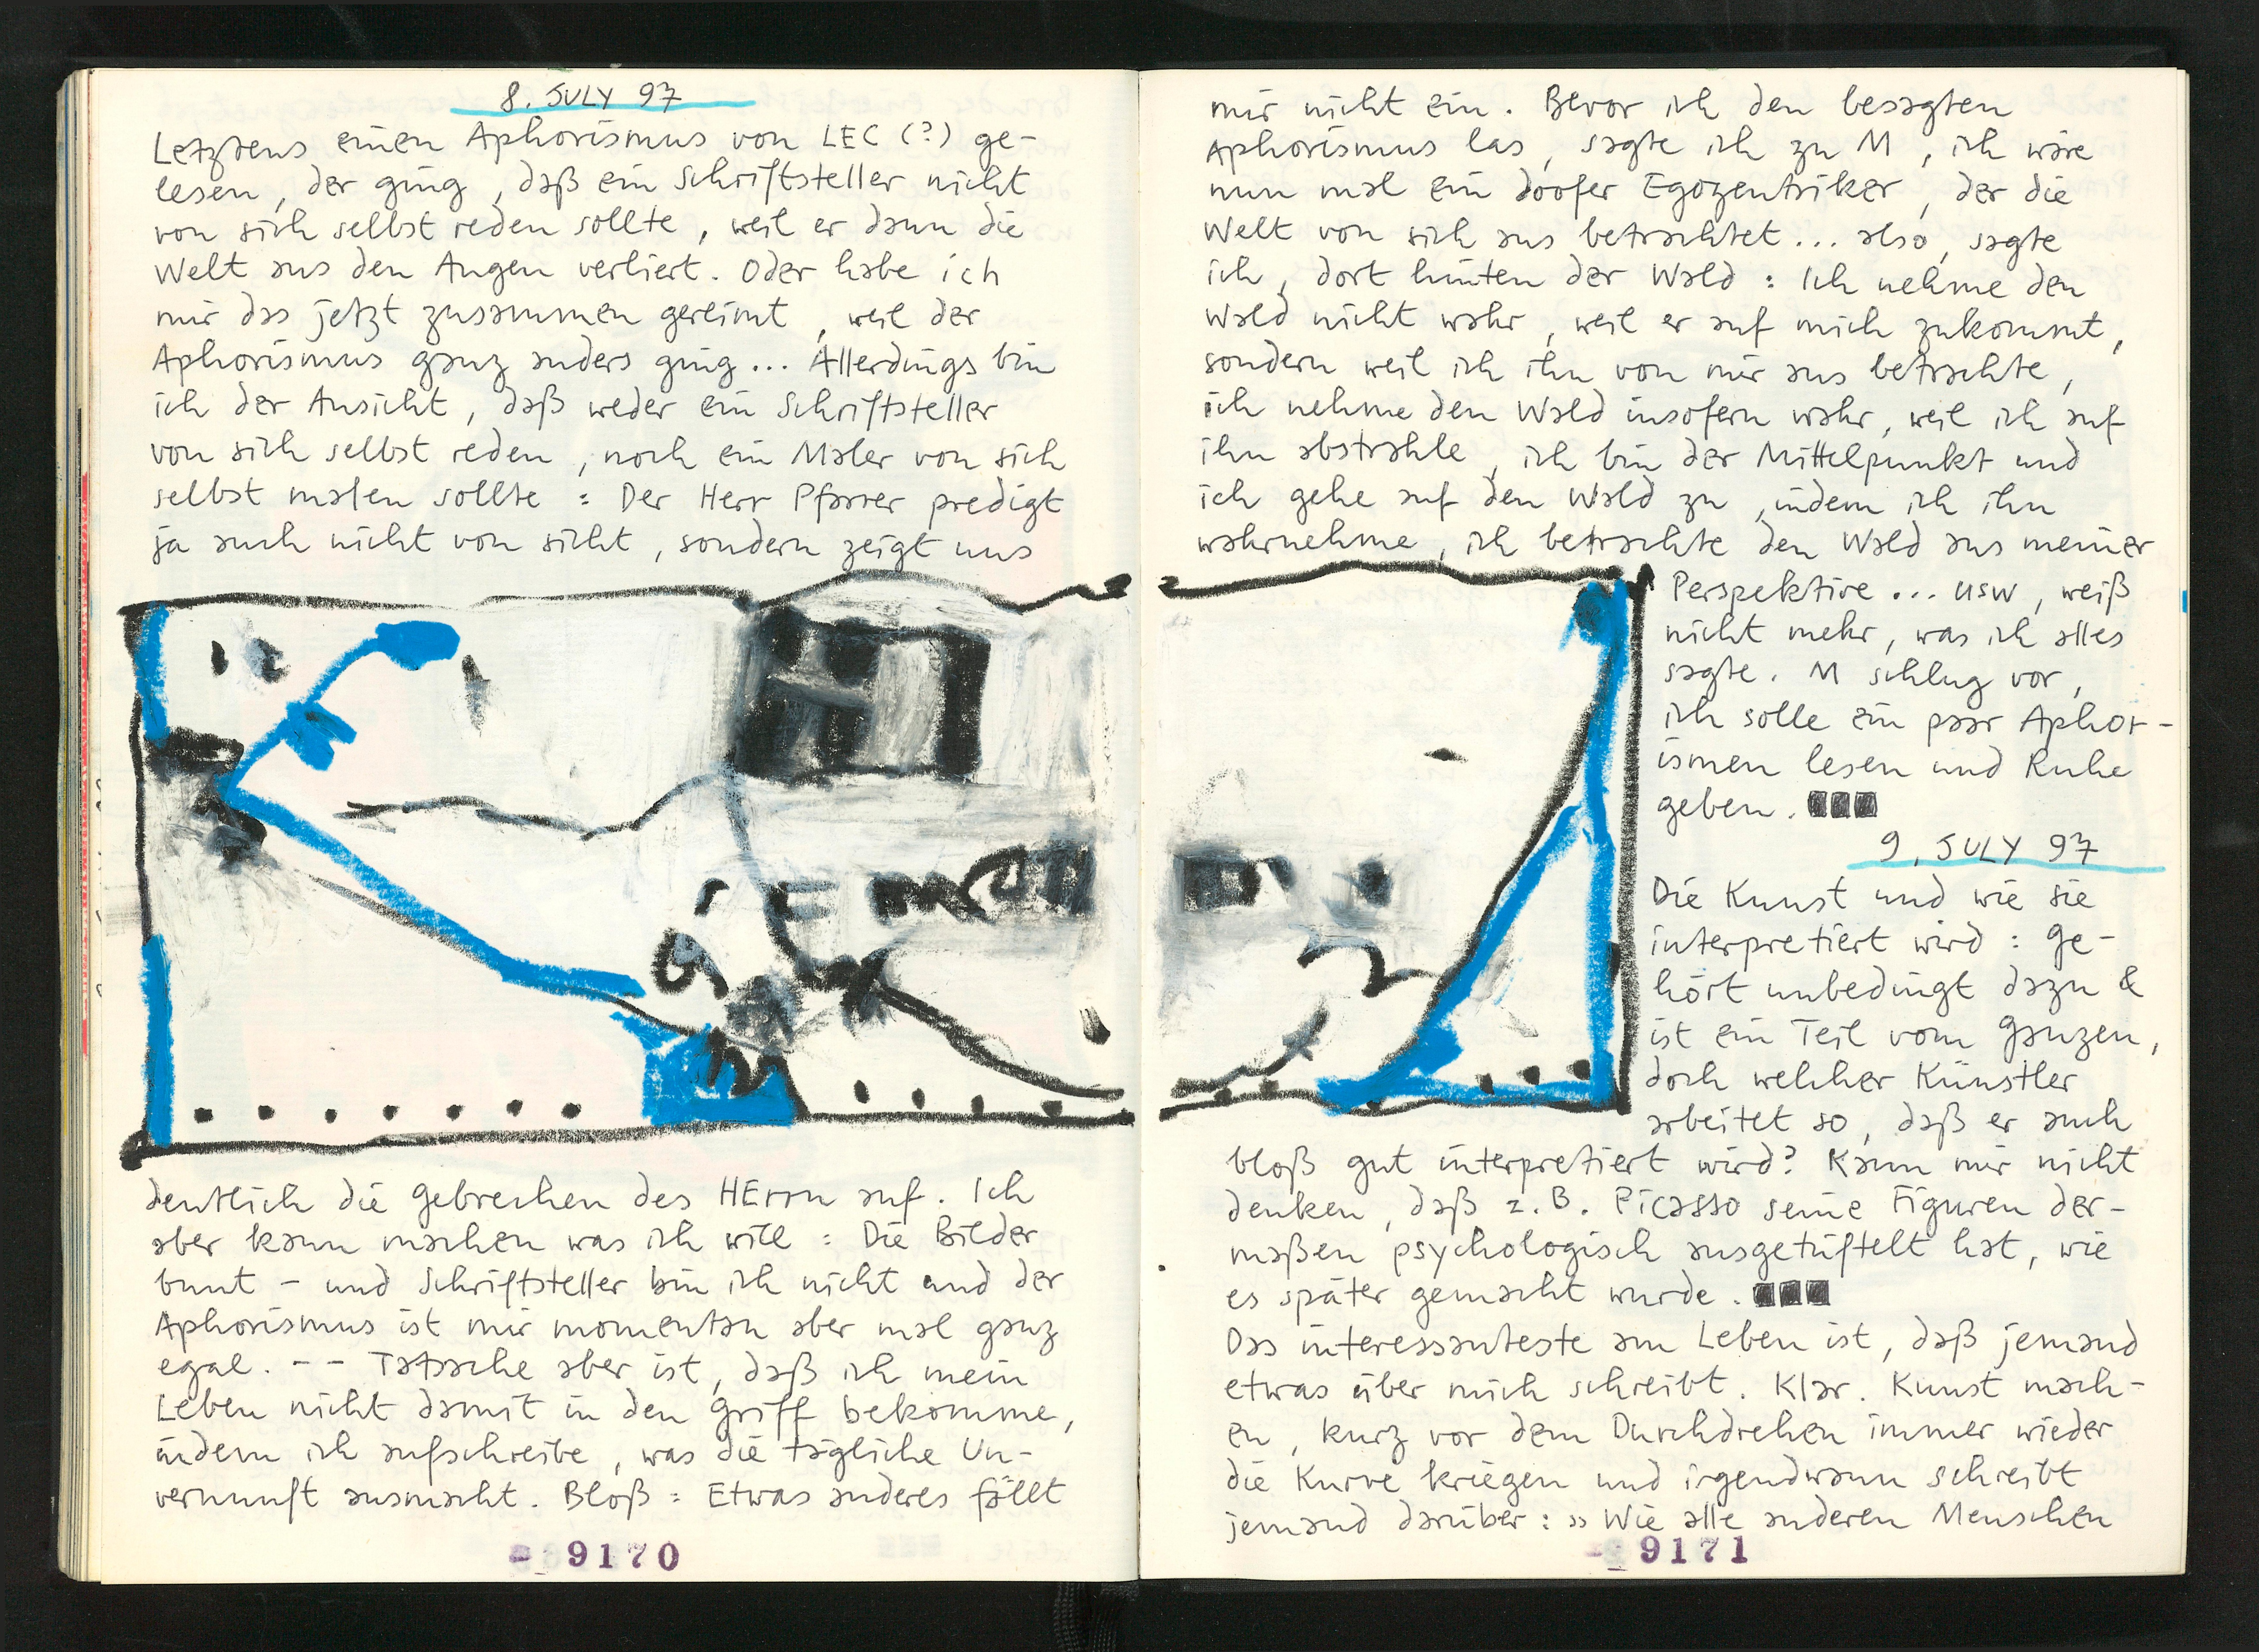 8. JULY 97
Letztens einen Aphorismus von LEC (?) ge-
lesen, der ging, daß ein Schriftsteller nicht
von sich selbst reden sollte, weil er dann die
Welt aus den Augen verliert. Oder habe ich
mir das jetzt zusammen gereimt, weil der
Aphorismus ganz anders ging... Allerdings bin
ich der Ansicht, daß weder ein Schriftsteller
von sich selbst reden, noch ein Maler von sich
selbst malen sollte: Der Herr Pfarrer predigt
ja auch nicht von sicht, sondern zeigt uns
deutlich die Gebrechen des HErrn auf. Ich
aber kann machen was ich will: Die Bilder
bunt – und Schriftsteller bin ich nicht und der
Aphorismus ist mir momentan aber mal ganz
egal. – – Tatsache aber ist, daß ich mein
Leben nicht damit in den Griff bekomme,
indem ich aufschreibe, was die tägliche Un-
vernunft ausmacht. Bloß: Etwas anderes fällt
9170
mir nicht ein. Bevor ich den besagten
Aphorismus las, sagte ich zu M, ich wäre
nun mal ein doofer Egozentriker, der die
Welt von sich aus betrachtet... also, sagte
ich, dort hinten der Wald: Ich nehme den
Wald nicht wahr, weil er auf mich zukommt,
sondern weil ich ihn von mir aus betrachte,
ich nehme den Wald insofern wahr, weil ich auf
ihn abstrahle, ich bin der Mittelpunkt und
ich gehe auf den Wald zu, indem ich ihn
wahrnehme, ich betrachte den Wald aus meiner
Perspektive... usw, weiß
nicht mehr, was ich alles
sagte. M schlug vor,
ich solle ein paar Aphor-
ismen lesen und Ruhe
geben.
9. JULY 97
Die Kunst und wie sie
interpretiert wird: Ge-
hört unbedingt dazu &
ist ein Teil vom Ganzen,
doch welcher Künstler
arbeitet so, daß er auch
bloß gut interpretiert wird? Kann mir nicht
denken, daß z.B. Picasso seine Figuren der-
maßen psychologisch ausgetüftelt hat, wie
es später gemacht wurde.
Das interessanteste am Leben ist, daß jemand
etwas über mich schreibt. Klar. Kunst mach-
en, kurz vor dem Durchdrehen immer wieder
die Kurve kriegen und irgendwann schreibt
jemand darüber: »Wie alle anderen Menschen
9171